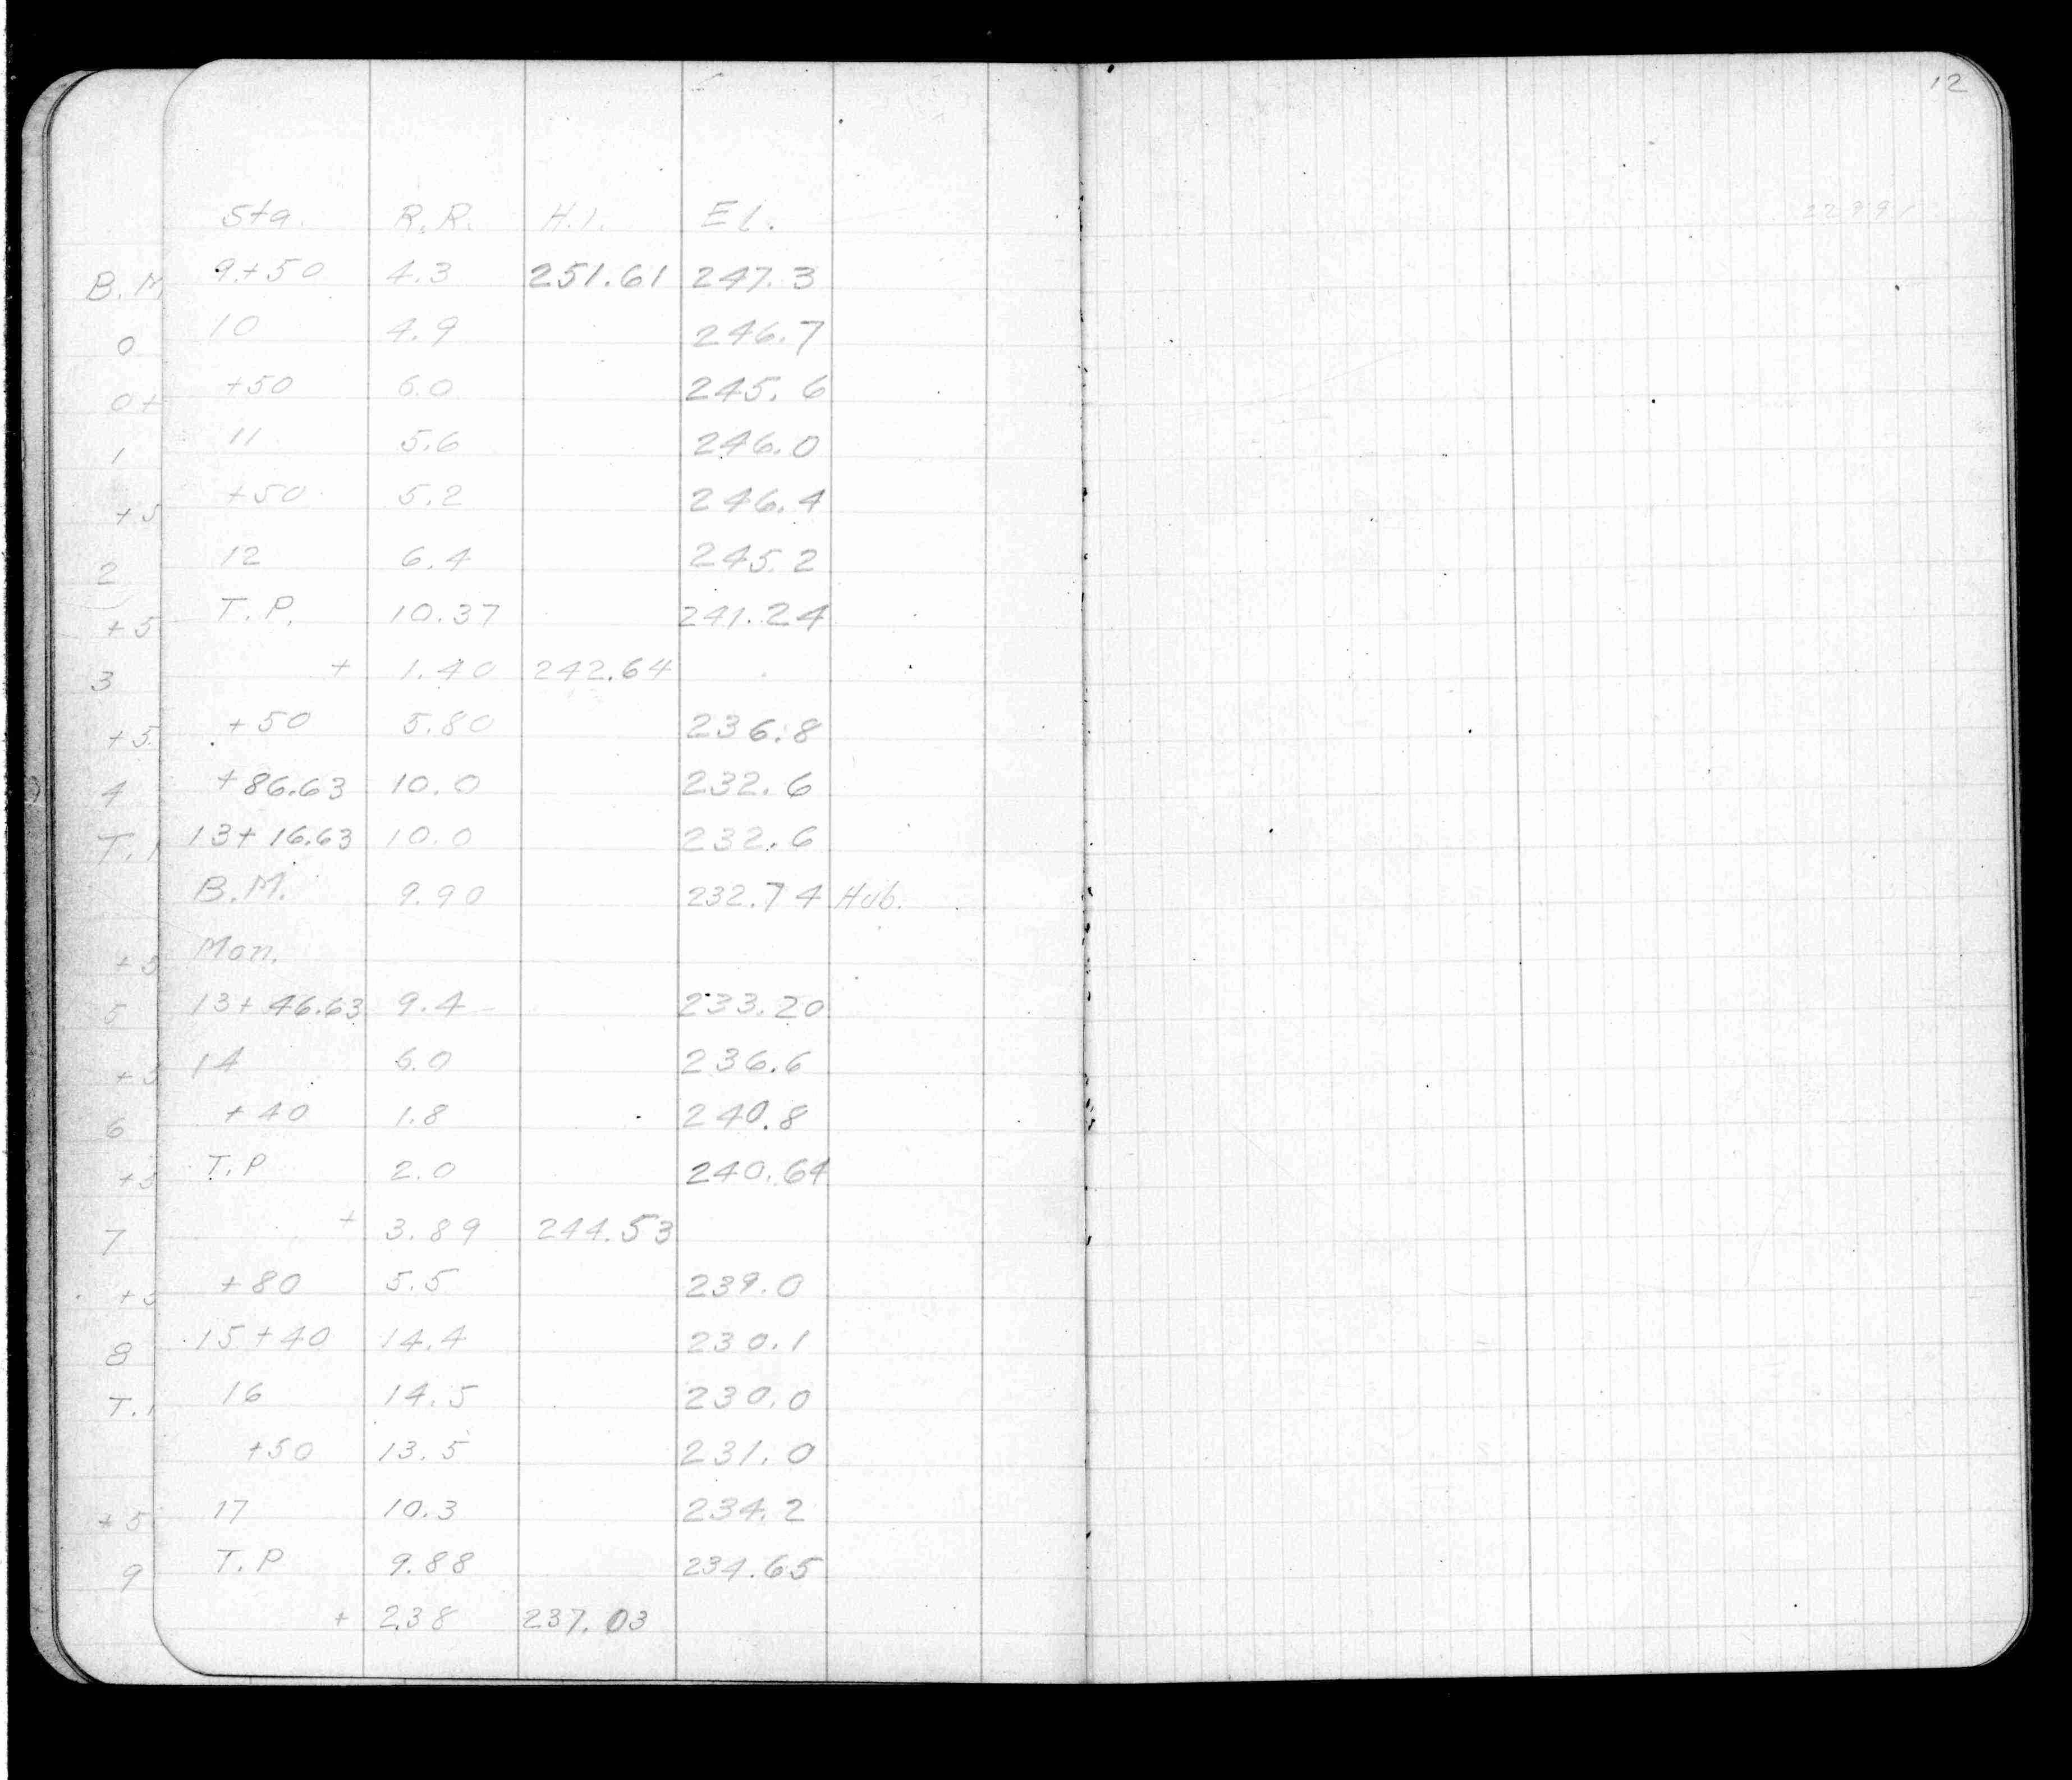 12
Sta. R.R. H.I. El.
B.M 9+50 4.3 251.61 247.3
0 10 4.9 246.7
0+ +50 6.0 245.6
1 11 5.6 246.0
+5 +50 5.2 246.4
2 12 6.4 245.2
+5 T.P. 10.37 241.24
3 + 1.40 242.64
+5 +50 5.80 236.8
4 +86.63 10.0 232.6
T. 13+16.63 10.0 232.6
B.M. 9.90 232.74 Hub.
+5 Mon.
5 13+46.63 9.4 233.20
+5 14 6.0 236.6
6 +40 1.8 240.8
+5 T.P 2.0 240.64
7 + 3.89 244.53
+5 +80 5.5 239.0
8 15+40 14.4 230.1
T. 16 14.5 230.0
+50 13.5 231.0
+5 17 10.3 234.2
9 T.P 9.88 234.65
+ 2.38 237.03